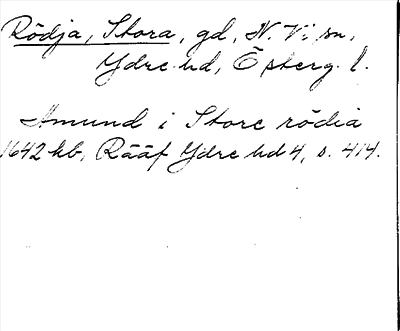 Rödja, Stora, gd, N. Vi sn,
Ydre hd, Östberg. l.
Amund i Store rödia
1642 kb, Rääf Ydre hd 4, s. 414.